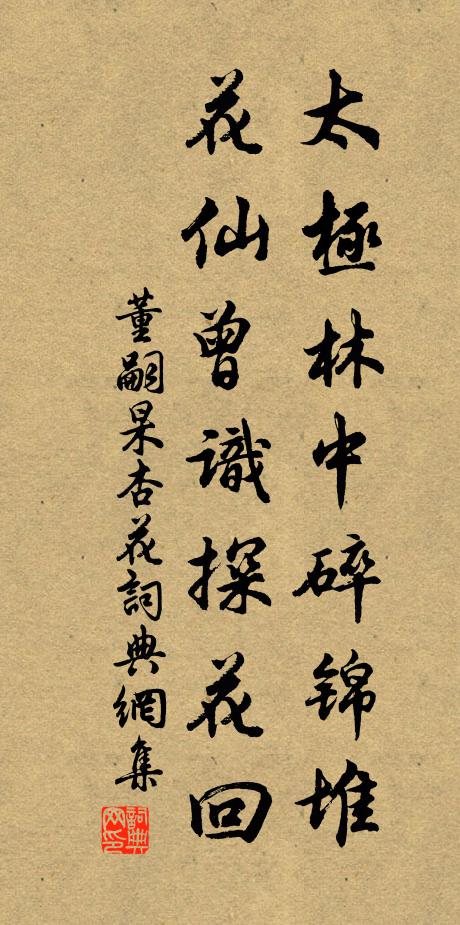 太極林中碎錦堆
花仙曾識探花回
董嗣杲杏花詞典網集
詞典網印